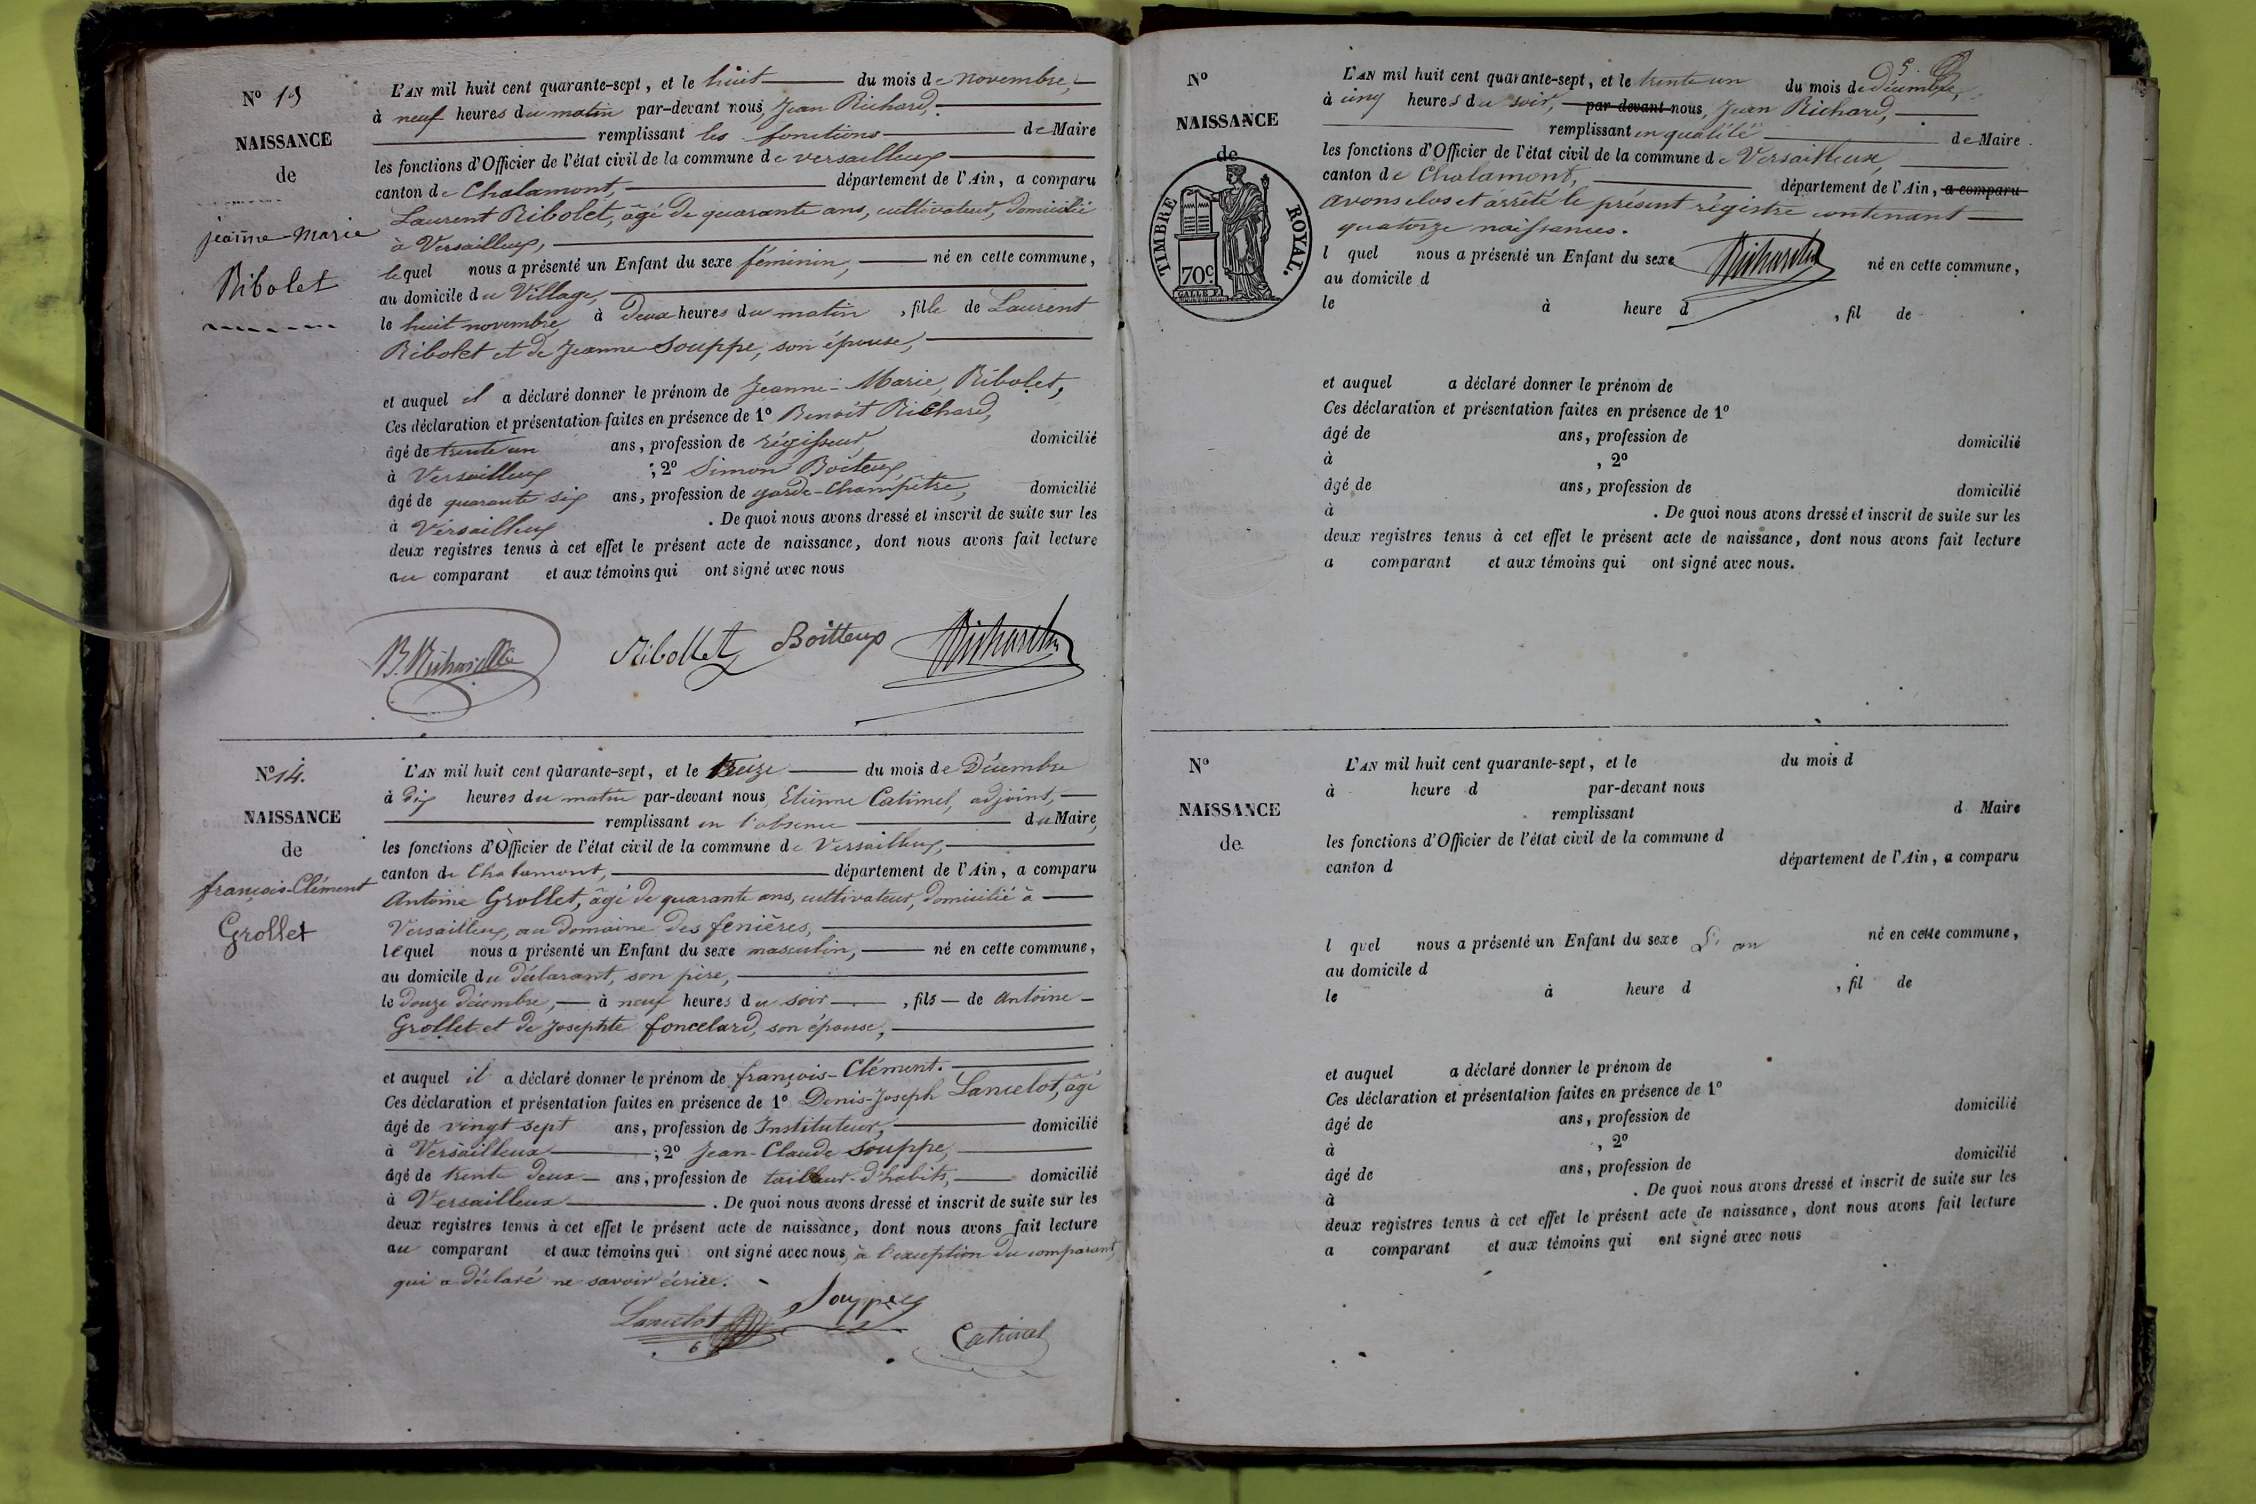 N° 13
NAISSANCE
de
jeanne-Marie
Ribolet
L'AN mil huit cent quarante-sept, et le huit du mois de novembre,
à neuf heures du matin par-devant nous, Jean Richard,
remplissant les fonctions de Maire
les fonctions d'Officier de l'état civil de la commune de versailleux
canton de Chalamont, département de l'Ain, a comparu
Laurent Ribolet, âgé de quarante ans, cultivateur, domicilié
à Versailleux,
lequel nous a présenté un Enfant du sexe féminin, né en cette commune,
au domicile du Village,
le huit novembre, à deux heures du matin, fille de Laurent
Ribolet et de Jeanne Souppe, son épouse,
et auquel il a déclaré donner le prénom de Jeanne-Marie, Ribolet,
Ces déclaration et présentation faites en présence de 1° Benoit Richard,
âgé de trente un ans, profession de régisseur, domicilié
à Versailleux ; 2° Simon Boiteux
âgé de quarante six ans, profession de garde-Champêtre, domicilié
à Versailleux . De quoi nous avons dressé et inscrit de suite sur les
deux registres tenus à cet effet le présent acte de naissance, dont nous avons fait lecture
au comparant et aux témoins qui ont signé avec nous
B. Richard Ribollet Boitteux Richard
N° 14.
NAISSANCE
de
françois-Clément
Grollet
L'AN mil huit cent quarante-sept, et le treize du mois de Décembre
à dix heures du matin par-devant nous, Etienne Catimel, adjoint,
remplissant en l'absence du Maire,
les fonctions d'Officier de l'état civil de la commune de Versailleux,
canton de Chalamont, département de l'Ain, a comparu
Antoine Grollet, âgé de quarante ans, cultivateur, domicilié à
Versailleux, au domaine des fenières,
lequel nous a présenté un Enfant du sexe masculin, né en cette commune,
au domicile du déclarant, son père,
le douze décembre, à neuf heures du soir, fils de Antoine
Grollet et de Josephte foncelard, son épouse,
et auquel il a déclaré donner le prénom de françois-Clément.
Ces déclaration et présentation faites en présence de 1° Denis-Joseph Lancelot, âgé
âgé de vingt sept ans, profession de Instituteur, domicilié
à Versailleux ; 2° Jean-Claude Souppe,
âgé de trente deux ans, profession de tailleur-d'habits, domicilié
à Versailleux . De quoi nous avons dressé et inscrit de suite sur les
deux registres tenus à cet effet le présent acte de naissance, dont nous avons fait lecture
au comparant et aux témoins qui ont signé avec nous, à l'exception du comparant,
qui a déclaré ne savoir écrire.
Lancelot Souppe Catimel
N°
NAISSANCE
de
TIMBRE ROYAL.
70c.
5.
L'AN mil huit cent quarante-sept, et le trente un du mois de décembre,
à cinq heures du soir, par-devant nous, Jean Richard,
remplissant en qualité de Maire
les fonctions d'Officier de l'état civil de la commune de Versailleux,
canton de Chalamont, département de l'Ain, a comparu
avons clos et arrêté le présent régistre contenant
quatorze naissances.
l quel nous a présenté un Enfant du sexe Richard né en cette commune,
au domicile d
le à heure d , fil de
et auquel a déclaré donner le prénom de
Ces déclaration et présentation faites en présence de 1°
âgé de ans, profession de domicilié
à , 2°
âgé de ans, profession de domicilié
à . De quoi nous avons dressé et inscrit de suite sur les
deux registres tenus à cet effet le présent acte de naissance, dont nous avons fait lecture
a comparant et aux témoins qui ont signé avec nous.
N°
NAISSANCE
de
L'AN mil huit cent quarante-sept, et le du mois d
à heure d par-devant nous
remplissant d Maire
les fonctions d'Officier de l'état civil de la commune d
canton d département de l'Ain, a comparu
l quel nous a présenté un Enfant du sexe né en cette commune,
au domicile d
le à heure d , fil de
et auquel a déclaré donner le prénom de
Ces déclaration et présentation faites en présence de 1°
âgé de ans, profession de domicilié
à , 2°
âgé de ans, profession de domicilié
à . De quoi nous avons dressé et inscrit de suite sur les
deux registres tenus à cet effet le présent acte de naissance, dont nous avons fait lecture
a comparant et aux témoins qui ont signé avec nous